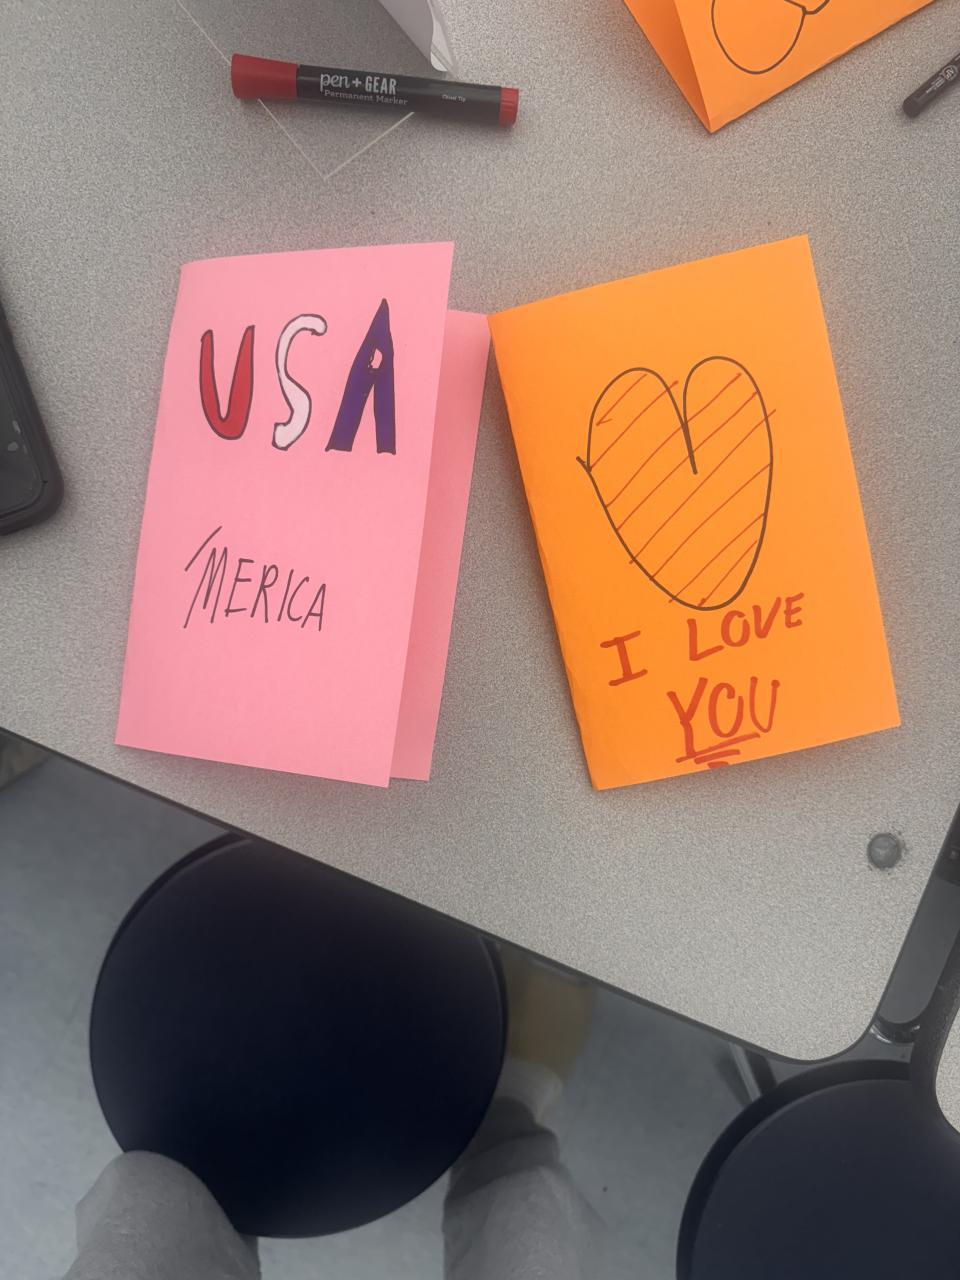 pen + GEAR
Permanent Marker
Chisel Tip
USA
'MERICA
I LOVE
YOU